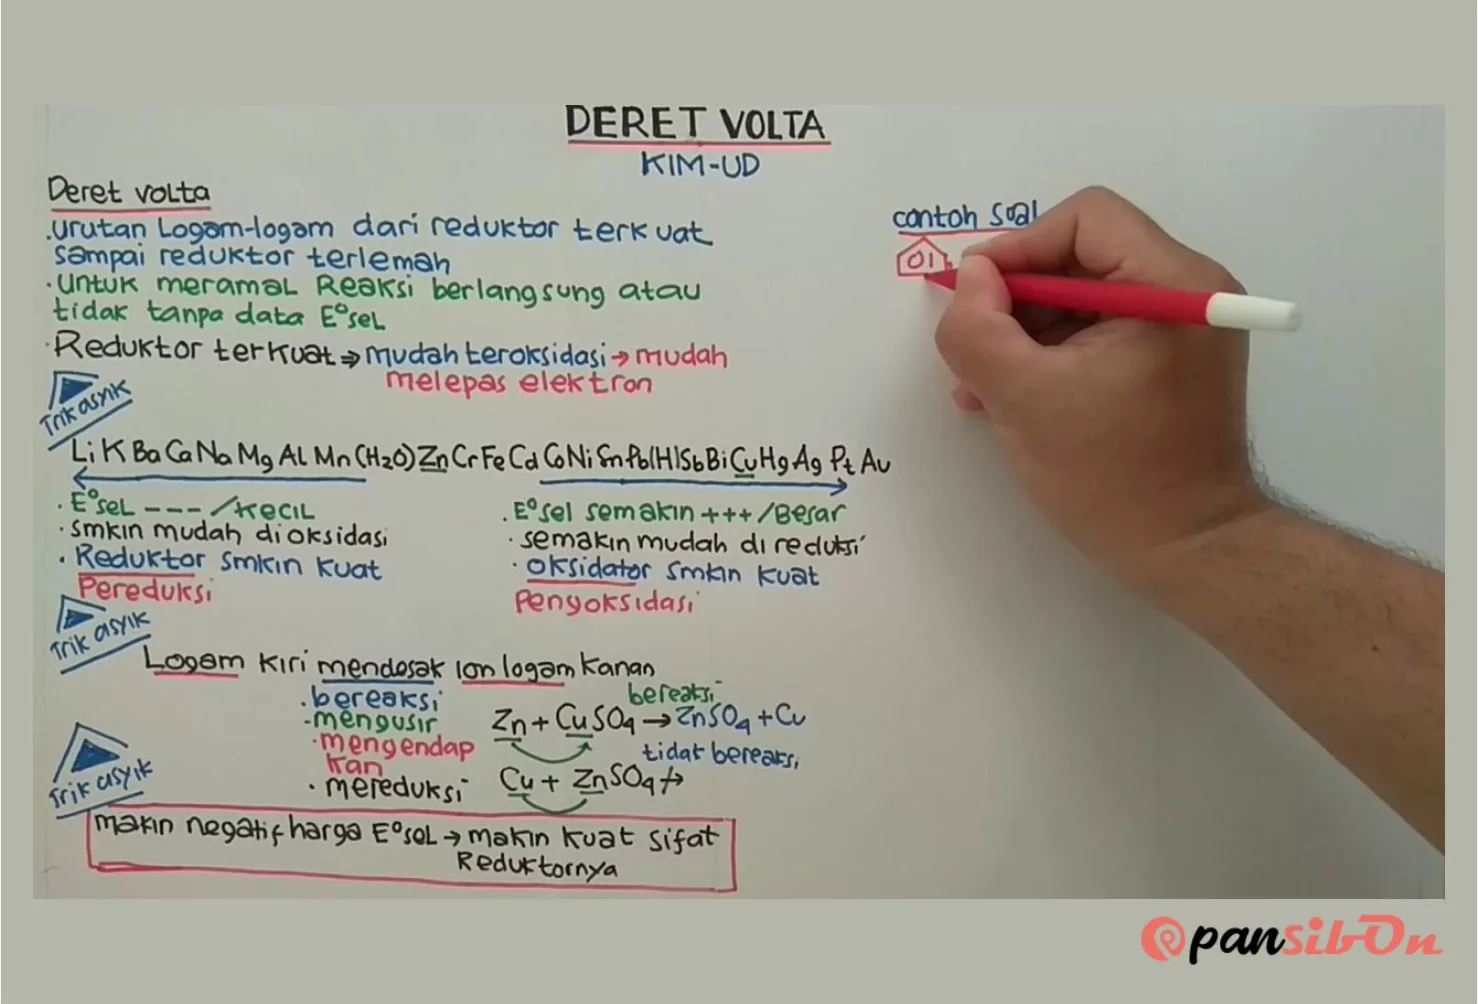 DERET VOLTA
KIM-UD
Deret volta
.urutan Logam-logam dari reduktor terkuat
sampai reduktor terlemah
.untuk meramal Reaksi berlangsung atau
tidak tanpa data E°sel
.Reduktor terkuat ⇒ mudah teroksidasi → mudah
melepas elektron
Trik asyik
Li K Ba Ca Na Mg Al Mn (H2O) Zn Cr Fe Cd Co Ni Sn Pb (H) Sb Bi Cu Hg Ag Pt Au
. E°sel --- /kecil
. smkin mudah dioksidasi
. Reduktor smkin kuat
Pereduksi
. E°sel semakin +++ /Besar
. semakin mudah di reduksi
. oksidator smkin kuat
Penyoksidasi
Trik asyik
Logam kiri mendesak ion logam kanan
. bereaksi
. mengusir
. mengendap
kan
. mereduksi
bereaksi
Zn + CuSO4 → ZnSO4 + Cu
tidat bereaksi
Cu + ZnSO4 ↛
Trik asyik
makin negatif harga E°sel → makin kuat sifat
Reduktornya
contoh soal
01
pansibOn